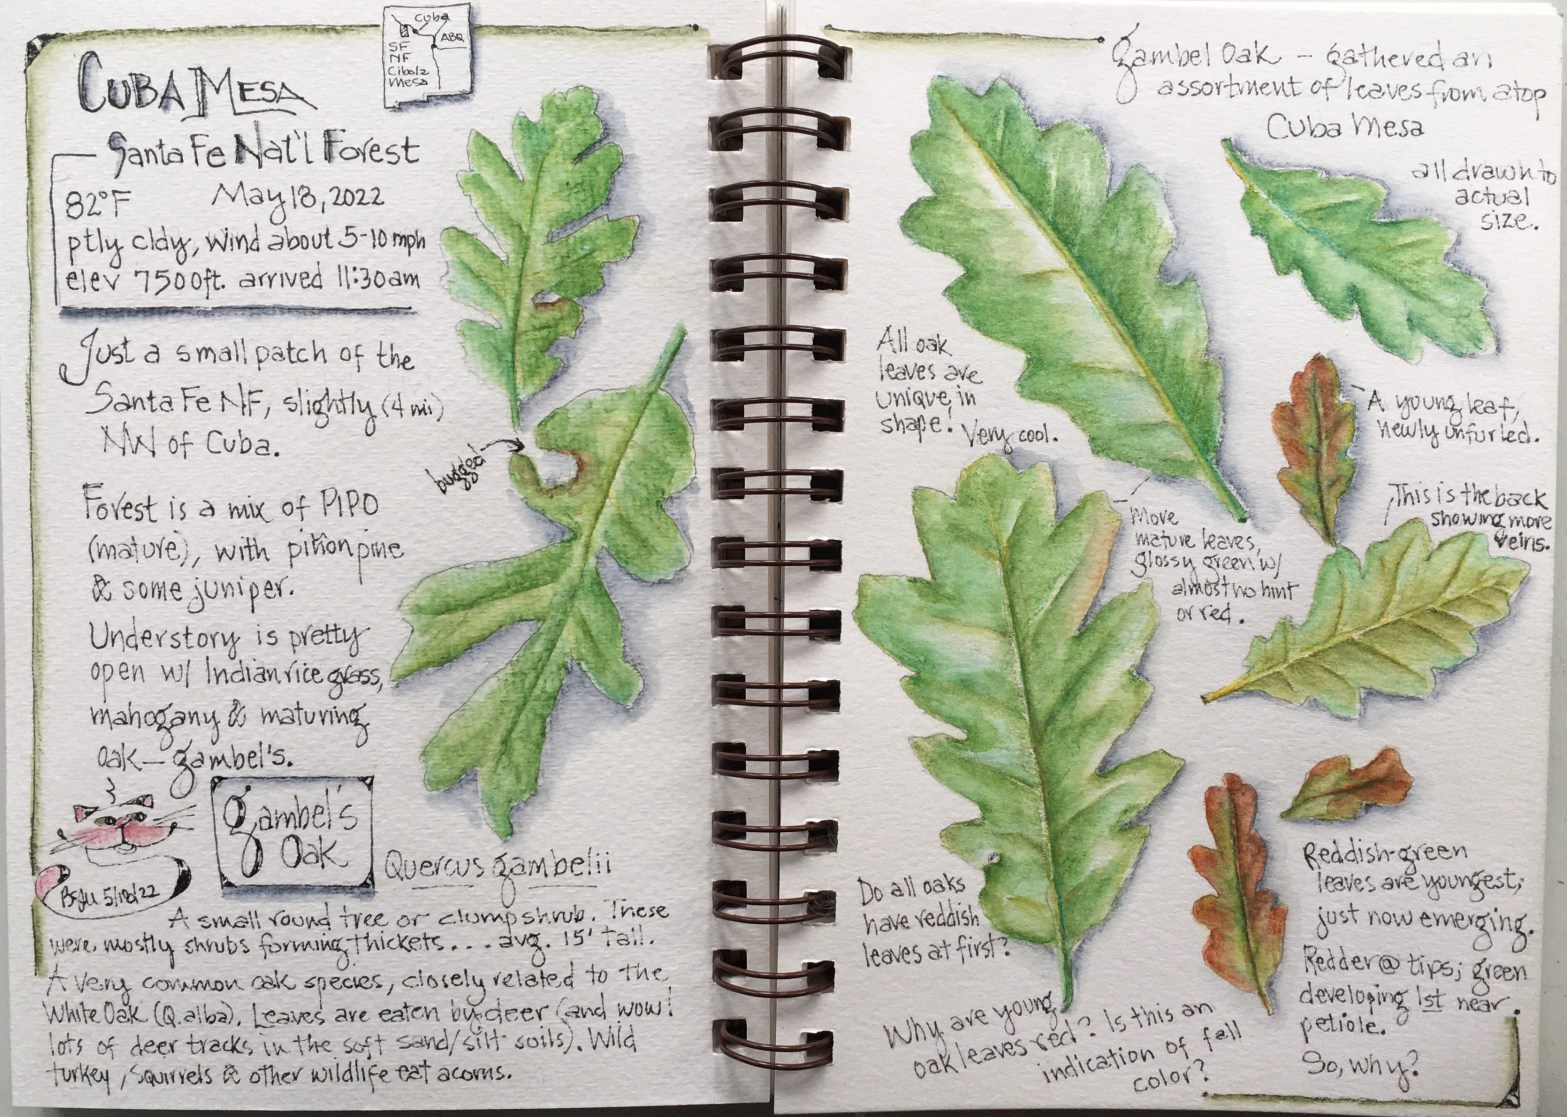 Cuba
ABQ
SF
NF
Cibola
Mesa
CUBA MESA
Santa Fe Nat'l Forest
82°F May 18, 2022
ptly cldy, wind about 5-10 mph
elev 7500ft. arrived 11:30am
Just a small patch of the
Santa Fe NF, slightly (4 mi)
NW of Cuba.
Forest is a mix of PIPO
(mature), with piñon pine
& some juniper.
Understory is pretty
open w/ Indian rice grass,
mahogany & maturing
oak — gambel's.
bugged
5/18/22
Gambel's
Oak
Quercus gambelii
A small round tree or clump shrub. These
were mostly shrubs forming thickets... avg. 15' tall.
A very common oak species, closely related to the
White Oak (Q. alba). Leaves are eaten by deer (and wow!
lots of deer tracks in the soft sand/silt soils). Wild
turkey, squirrels & other wildlife eat acorns.
Gambel Oak — gathered an
assortment of leaves from atop
Cuba Mesa
all drawn to
actual
size.
All oak
leaves are
unique in
shape! Very cool.
A young leaf,
newly unfurled.
This is the back
showing more
veins.
More
mature leaves,
glossy green w/
almost no hint
or red.
Do all oaks
have reddish
leaves at first?
Why are young
oak leaves red? Is this an
indication of fall
color?
Reddish-green
leaves are youngest;
just now emerging.
Redder @ tips; green
developing 1st near
petiole.
So, why?